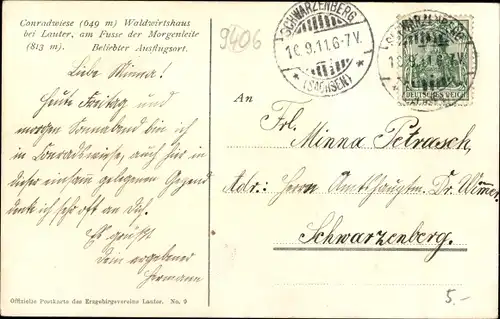 Conradwiese (649 m) Waldwirtshaus
bei Lauter, am Fusse der Morgenleite
(813 m). Beliebter Ausflugsort.
9406
SCHWARZENBERG
16.9.11.6-7V.
* (SACHSEN) *
DEUTSCHES REICH
Liebe Minna!
Heute Freitag und
morgen Sonnabend bin ich
in Conradswiese, auch hier in
dieser einsam gelegenen Gegend
denk ich sehr oft an Dich.
Es grüßt
Dein ergebener
Hermann
An
Frl.
Minna Petrasch,
Adr: Herrn Amtshauptm. Dr. Wimmer.
Schwarzenberg.
5.-
Offizielle Postkarte des Erzgebirgsvereins Lauter. No. 9